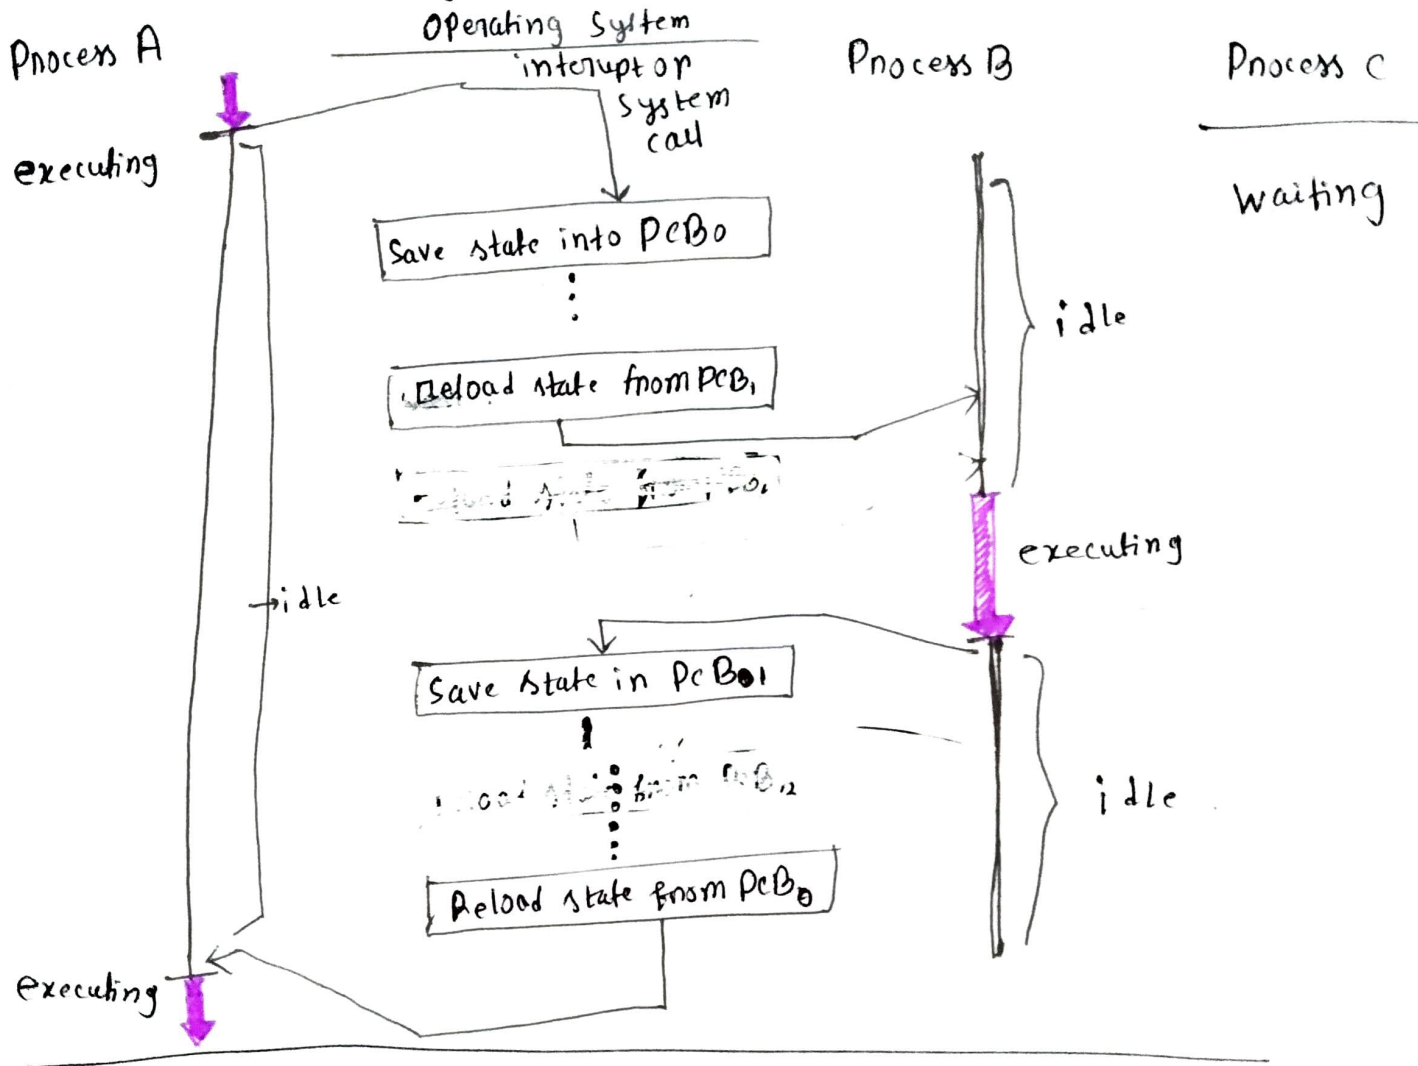 Operating System
Process A
interupt or
system
call
Process B
Process C
executing
waiting
Save state into PCB0
idle
Reload state from PCB1
executing
idle
Save state in PCB01
idle
Reload state from PCB0
executing